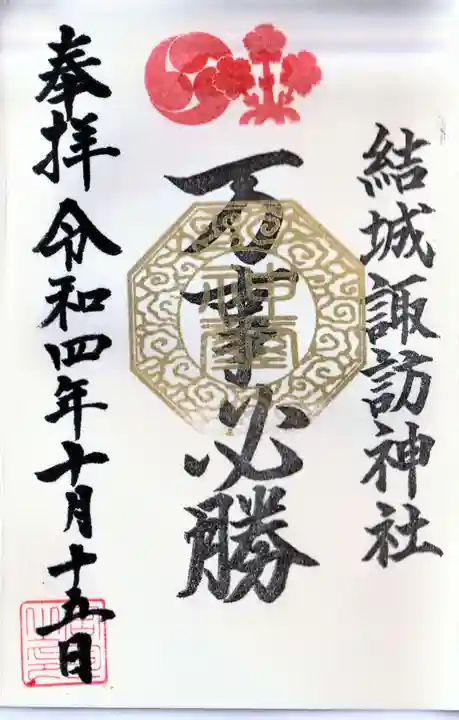 結城諏訪神社
万事必勝
奉拝 令和四年十月十五日